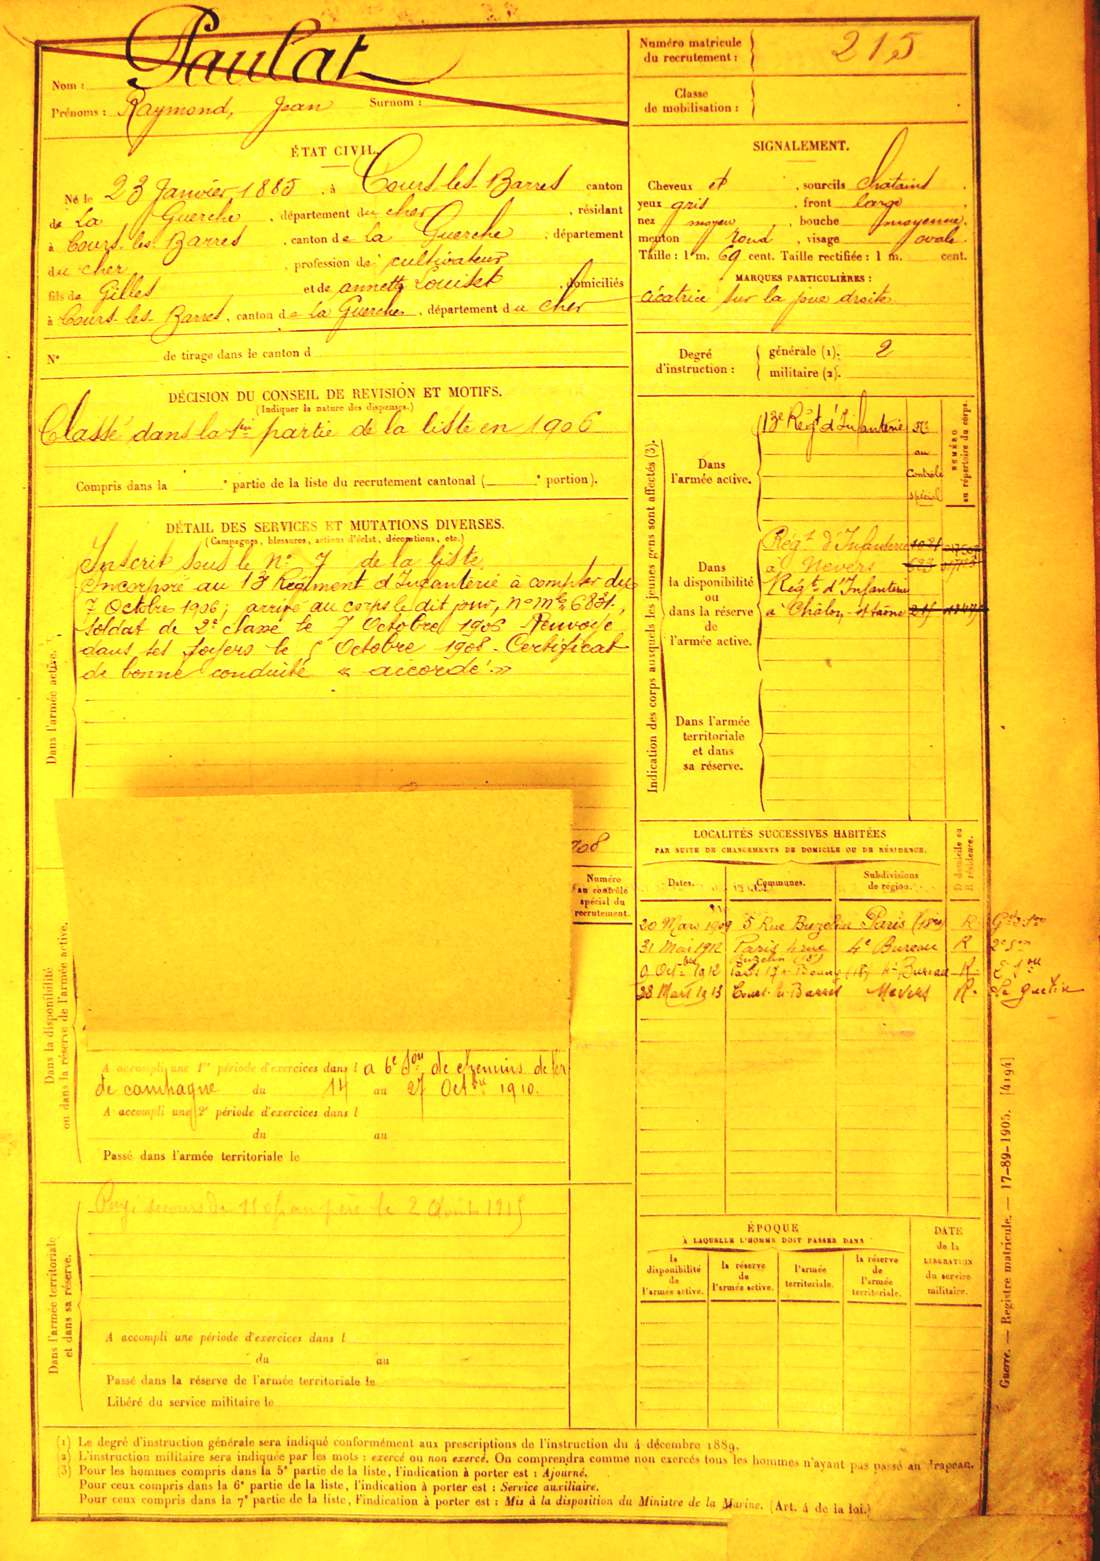 Nom : Paulat
Prénoms : Raymond, Jean Surnom :
Numéro matricule du recrutement : 215
Classe de mobilisation :
ÉTAT CIVIL.
Né le 23 Janvier 1885, à Cours-les-Barres canton
de La Guerche, département du cher, résidant
à Cours-les-Barres, canton de la Guerche, département
du cher, profession de cultivateur
fils de Gilles et de annette Louiset, domiciliés
à Cours-les-Barres, canton de la Guerche, département du cher
N° de tirage dans le canton d
SIGNALEMENT.
Cheveux et, sourcils chatains.
yeux gris, front large
nez moyen, bouche moyenne.
menton rond, visage ovale.
Taille : 1 m. 69 cent. Taille rectifiée : 1 m. cent.
MARQUES PARTICULIÈRES :
cicatrice sur la joue droite
Degré d'instruction :
générale (1). 2
militaire (2).
DÉCISION DU CONSEIL DE REVISION ET MOTIFS.
(Indiquer la nature des dispenses.)
Classé dans la 1re partie de la liste en 1906
Compris dans la e partie de la liste du recrutement cantonal ( e portion).
DÉTAIL DES SERVICES ET MUTATIONS DIVERSES.
(Campagnes, blessures, actions d'éclat, décorations, etc.)
Dans l'armée active.
Inscrit sous le N° 7 de la liste
Incorporé au 13e Régiment d'Infanterie à compter du
7 Octobre 1906; arrivé au corps le dit jour, n° mle 6831,
soldat de 2e classe le 7 Octobre 1906 Renvoyé
dans ses foyers le Octobre 1908. Certificat
de bonne conduite « accordé »
908
Numéro au contrôle spécial du recrutement.
Indication des corps auxquels les jeunes gens sont affectés (3).
NUMÉRO au répertoire du corps.
Dans l'armée active.
13e Régt d'Infanterie
No au Contrôle spécial
Dans la disponibilité ou dans la réserve de l'armée active.
Régt d'Infanterie
à Nevers
Régt d'Infanterie
à Chalon s/ Saône
Dans l'armée territoriale et dans sa réserve.
LOCALITÉS SUCCESSIVES HABITÉES
PAR SUITE DE CHANGEMENTS DE DOMICILE OU DE RÉSIDENCE.
Dates. Communes. Subdivisions de région. D domicile ou R résidence.
20 Mars 1909 5 Rue Buzelin Paris (18e) R
31 Mai 1912 Paris 4 rue Buzelin (18) 4e Bureau R
9 Octbre 1912 Paris 17 r. (18) 4e Bureau R
28 Mars 1913 Cours-les-Barres Nevers R. Le guetin
Dans la disponibilité ou dans la réserve de l'armée active.
A accompli une 1re période d'exercices dans l a 6e Son de chemins de fer
de campagne du 14 au 27 Octbre 1910.
A accompli une 2e période d'exercices dans l
du au
Passé dans l'armée territoriale le
Dans l'armée territoriale et dans sa réserve.
le 2 1915
A accompli une période d'exercices dans l
du au
Passé dans la réserve de l'armée territoriale le
Libéré du service militaire le
ÉPOQUE
À LAQUELLE L'HOMME DOIT PASSER DANS
la disponibilité de l'armée active.
la réserve de l'armée active.
l'armée territoriale.
la réserve de l'armée territoriale.
DATE de la LIBÉRATION du service militaire.
Guerre. — Registre matricule. — 17-89-1905. [4194]
(1) Le degré d'instruction générale sera indiqué conformément aux prescriptions de l'instruction du 4 décembre 1889.
(2) L'instruction militaire sera indiquée par les mots : exercé ou non exercé. On comprendra comme non exercés tous les hommes n'ayant pas passé au drapeau.
(3) Pour les hommes compris dans la 5e partie de la liste, l'indication à porter est : Ajourné.
Pour ceux compris dans la 6e partie de la liste, l'indication à porter est : Service auxiliaire.
Pour ceux compris dans la 7e partie de la liste, l'indication à porter est : Mis à la disposition du Ministre de la Marine. (Art. 4 de la loi.)